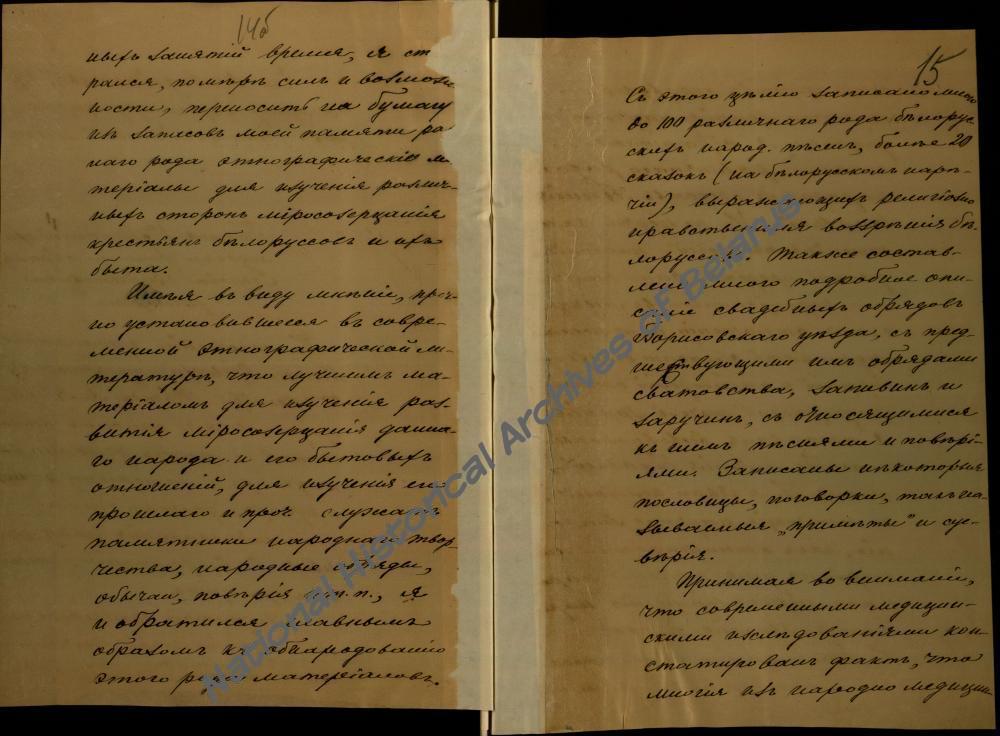 14об
ныхъ занятій время, я ст
рался, помѣрѣ силъ и возмож
ности, переносить на бумагу
изъ запасовъ моей памяти ра
наго рода этнографическіе м
теріалы для изученія различ-
ныхъ сторонъ міросозерцанія
крестьянъ бѣлоруссовъ и ихъ
быта.
Имѣя въ виду мнѣніе, проч-
но установившееся въ совре-
менной этнографической ли-
тературѣ, что лучшимъ ма-
теріаломъ для изученія раз-
витія міросозерцанія данна-
го народа и его бытовыхъ
отношеній, для изученія его
прошлаго и проч. служатъ
памятники народнаго твор-
чества, народные обряды,
обычаи, повѣрія и т. п., я
и обратился главнымъ
образомъ къ обнародованію
этого рода матеріаловъ.
15
Съ этого цѣлію записано мною
до 100 различнаго рода бѣлорус
скихъ народ. пѣсенъ, болѣе 20
сказокъ (на бѣлорусскомъ нарѣ-
чіи), выражающихъ религіозно
нравственныя воззрѣнія бѣ-
лоруссовъ. Также состав-
лено мною подробное опи-
саніе свадебныхъ обрядовъ
Борисовскаго уѣзда, съ пред
шествующими имъ обрядами
сватовства, запивинъ и
заручинъ, съ относящимися
къ нимъ пѣснями и повѣрі-
ями. Записаны нѣкоторыя
пословицы, поговорки, такъ на
зываемыя „примѣты" и суе-
вѣрія.
Принимая во вниманіе,
что современными медицин-
скими изслѣдованіями кон-
статированъ фактъ, что
многія изъ народно медицин
National Historical Archives of Belarus